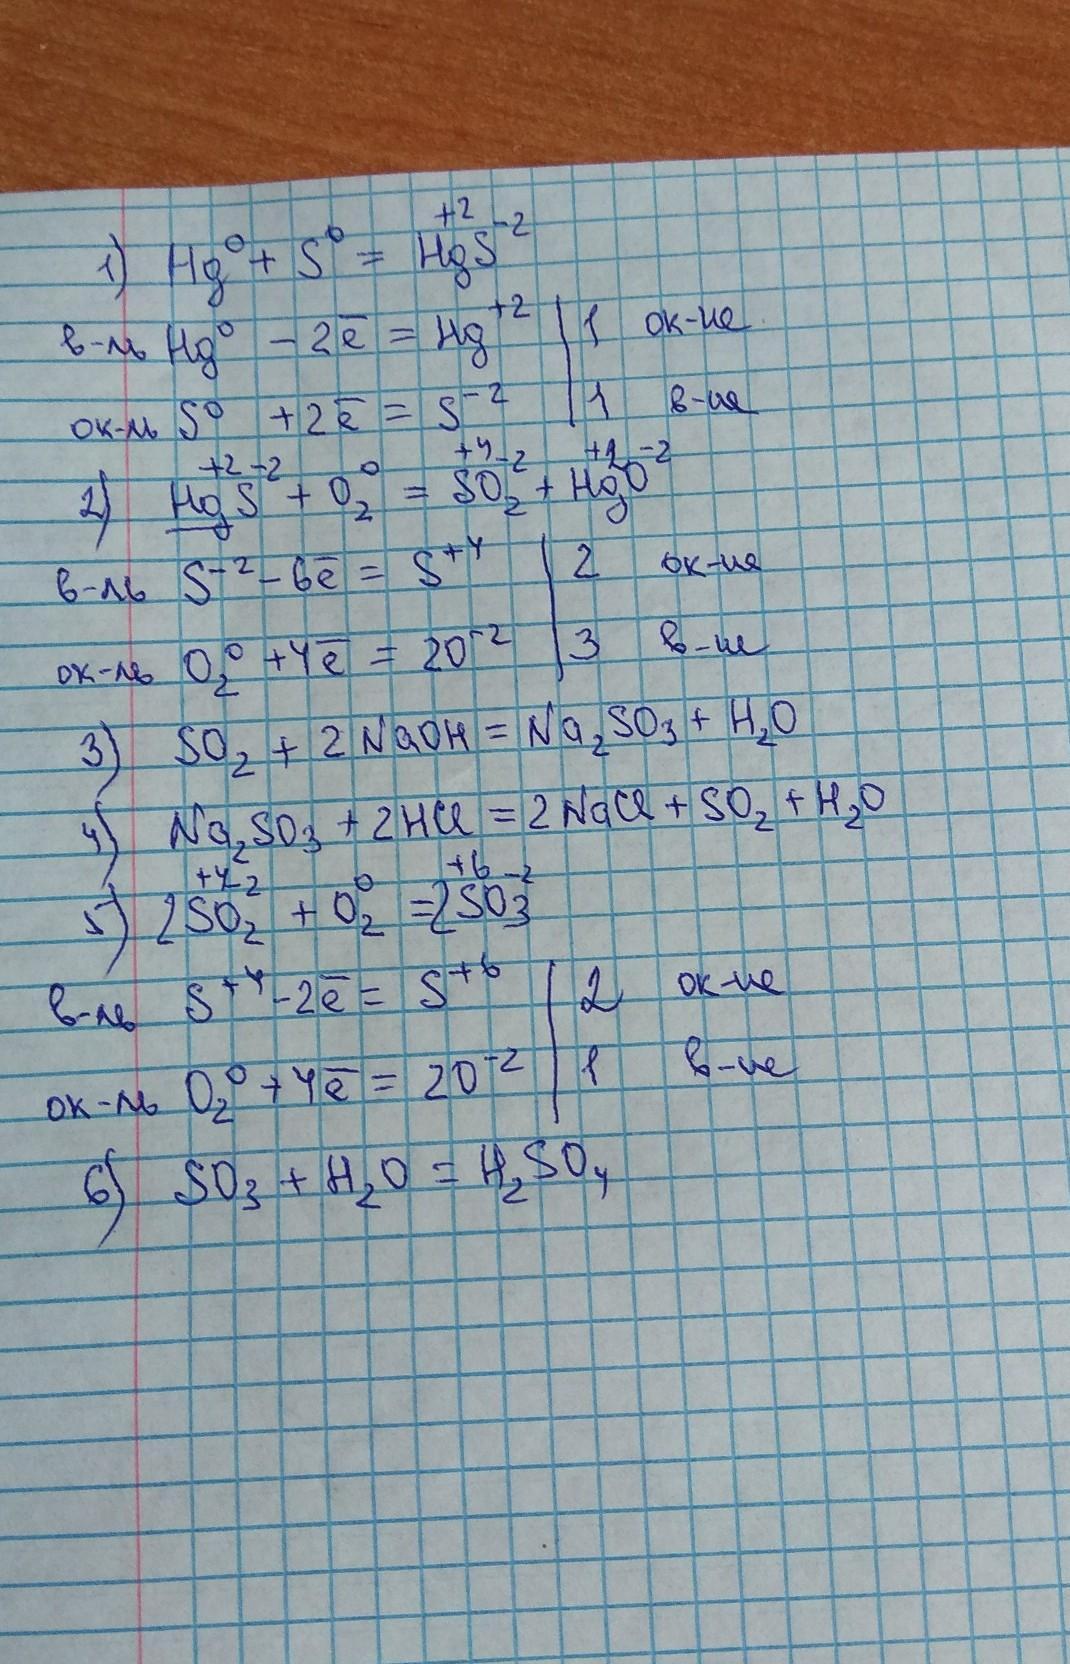 1) Hg⁰ + S⁰ = Hg⁺²S⁻²
в-ль Hg⁰ - 2e̅ = Hg⁺² | 1 ок-ие
ок-ль S⁰ + 2e̅ = S⁻² | 1 в-ие
2) Hg⁺²S⁻² + O₂⁰ = S⁺⁴O₂⁻² + Hg⁺²O⁻²
в-ль S⁻² - 6e̅ = S⁺⁴ | 2 ок-ие
ок-ль O₂⁰ + 4e̅ = 2O⁻² | 3 в-ие
3) SO₂ + 2NaOH = Na₂SO₃ + H₂O
4) Na₂SO₃ + 2HCl = 2NaCl + SO₂ + H₂O
5) 2S⁺⁴O₂⁻² + O₂⁰ = 2S⁺⁶O₃⁻²
в-ль S⁺⁴ - 2e̅ = S⁺⁶ | 2 ок-ие
ок-ль O₂⁰ + 4e̅ = 2O⁻² | 1 в-ие
6) SO₃ + H₂O = H₂SO₄